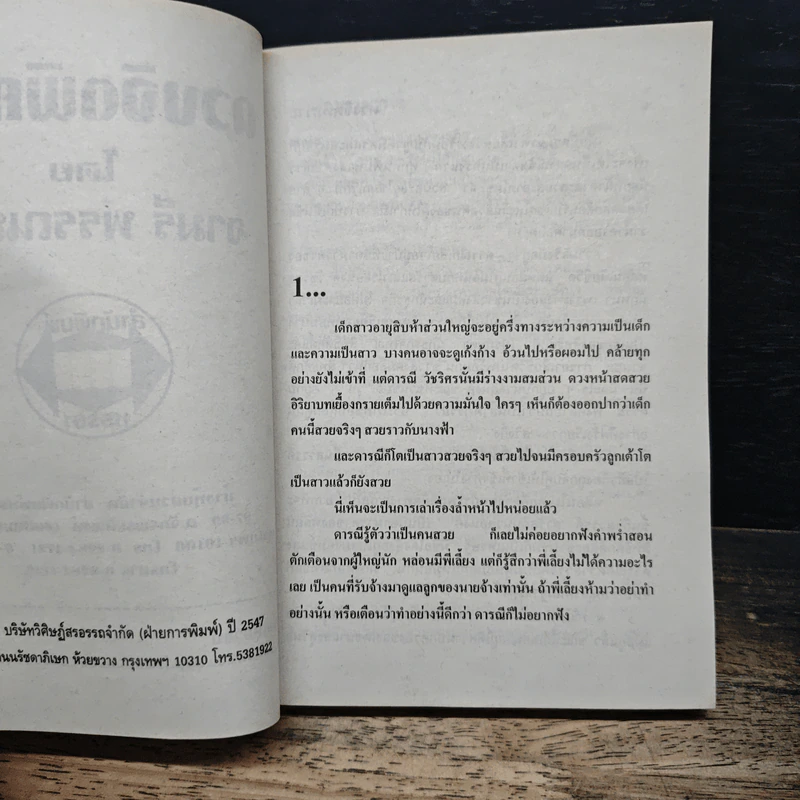 บริษัทวิศิษฎ์สรอรรถจำกัด (ฝ่ายการพิมพ์) ปี 2547
ถนนรัชดาภิเษก ห้วยขวาง กรุงเทพฯ 10310 โทร.5381922
1...
เด็กสาวอายุสิบห้าส่วนใหญ่จะอยู่ครึ่งทางระหว่างความเป็นเด็ก
และความเป็นสาว บางคนอาจจะดูเก้งก้าง อ้วนไปหรือผอมไป คล้ายทุก
อย่างยังไม่เข้าที่ แต่ดารณี วัชริศรนั้นมีร่างงามสมส่วน ดวงหน้าสดสวย
อิริยาบทเยื้องกรายเต็มไปด้วยความมั่นใจ ใครๆ เห็นก็ต้องออกปากว่าเด็ก
คนนี้สวยจริงๆ สวยราวกับนางฟ้า
และดารณีก็โตเป็นสาวสวยจริงๆ สวยไปจนมีครอบครัวลูกเต้าโต
เป็นสาวแล้วก็ยังสวย
นี่เห็นจะเป็นการเล่าเรื่องล้ำหน้าไปหน่อยแล้ว
ดารณีรู้ตัวว่าเป็นคนสวย ก็เลยไม่ค่อยอยากฟังคำพร่ำสอน
ตักเตือนจากผู้ใหญ่นัก หล่อนมีพี่เลี้ยง แต่ก็รู้สึกว่าพี่เลี้ยงไม่ได้ความอะไร
เลย เป็นคนที่รับจ้างมาดูแลลูกของนายจ้างเท่านั้น ถ้าพี่เลี้ยงห้ามว่าอย่าทำ
อย่างนั้น หรือเตือนว่าทำอย่างนี้ดีกว่า ดารณีก็ไม่อยากฟัง